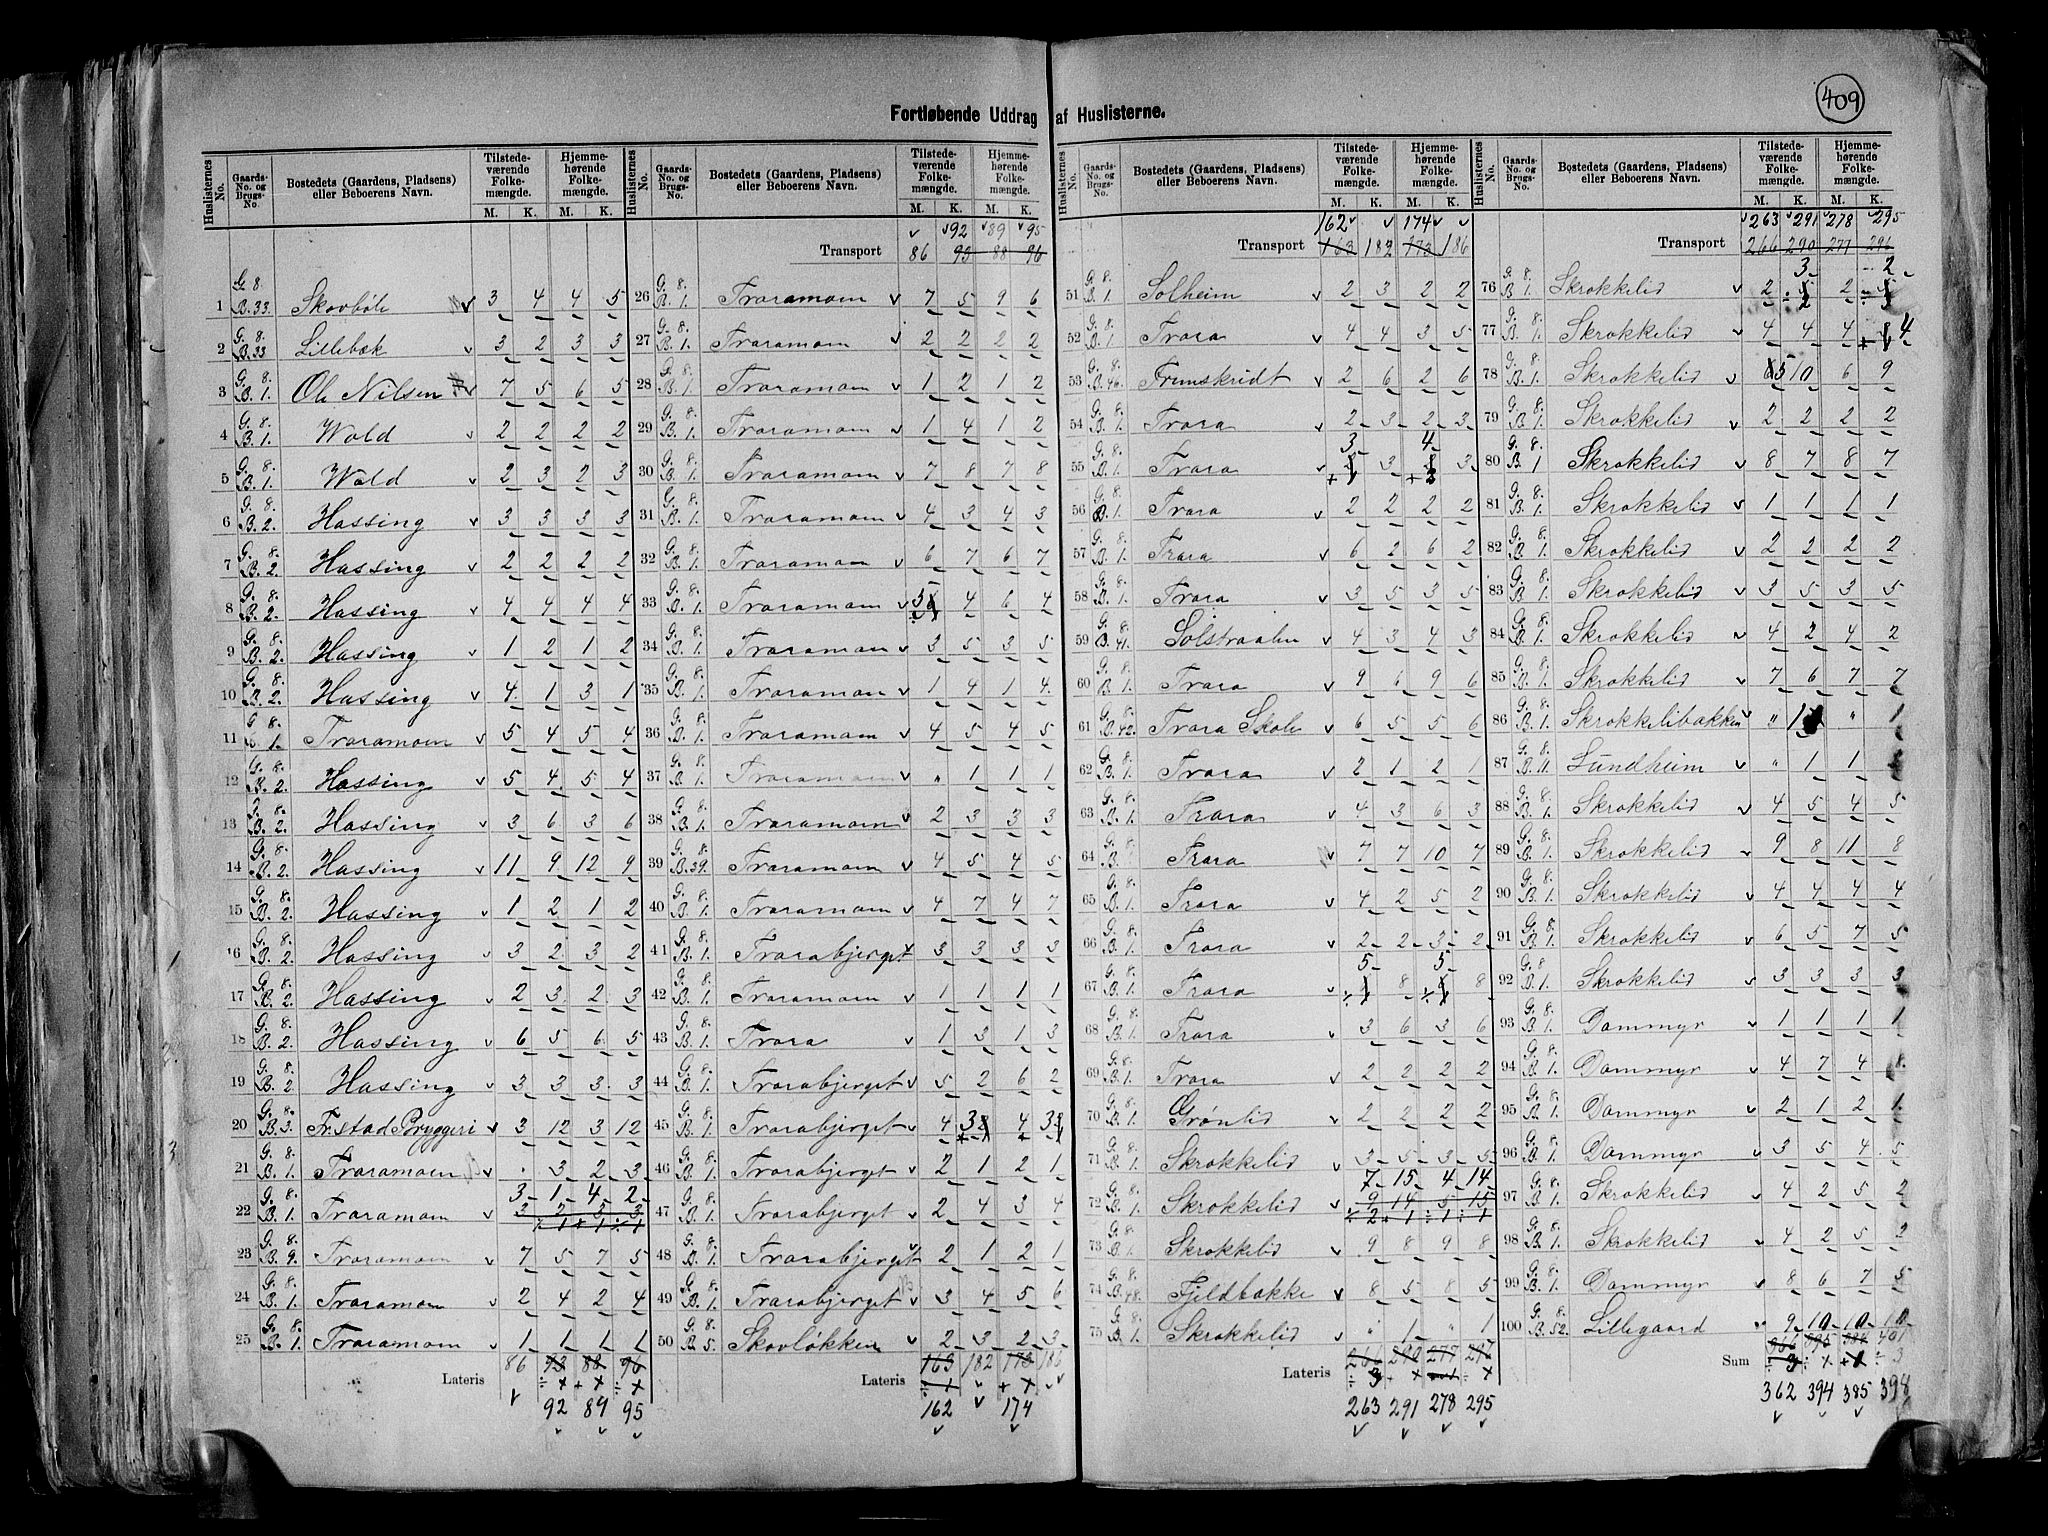 409
Fortløbende Uddrag af Huslisterne.
Huslisternes No. | Gaards-No. og Brugs-No. | Bostedets (Gaardens, Pladsens) eller Beboerens Navn. | Tilstedeværende Folkemængde. M. K. | Hjemmehørende Folkemængde. M. K.
1 G. 8. B. 33. Skovböle 3 4 4 5
2 G. 8. B. 33 Lillebæk 3 2 3 3
3 G. 8. B. 1. Ole Nilsen 7 5 6 5
4 G. 8. B. 1. Wold 2 2 2 2
5 G. 8. B. 1. Wold 2 3 2 3
6 G. 8. B. 2. Hassing 3 3 3 3
7 G. 8. B. 2. Hassing 2 2 2 2
8 G. 8. B. 2. Hassing 4 4 4 4
9 G. 8. B. 2. Hassing 1 2 1 2
10 G. 8. B. 2. Hassing 4 1 3 1
11 G. 8. B. 1. Traramoen 5 4 5 4
12 G. 8. B. 2. Hassing 5 4 5 4
13 G. 8. B. 2. Hassing 3 6 3 6
14 G. 8. B. 2. Hassing 11 9 12 9
15 G. 8. B. 2. Hassing 1 2 1 2
16 G. 8. B. 2. Hassing 3 2 3 2
17 G. 8. B. 2. Hassing 2 3 2 3
18 G. 8. B. 2. Hassing 6 5 6 5
19 G. 8. B. 2 Hassing 3 3 3 3
20 G. 8. B. 3. Fr.stad Bryggeri 3 12 3 12
21 G. 8. B. 1. Traramoen . 3 2 3
3 1 4 2
22 G. 8. B. 1. Traramoen 3 2 3 3
÷1 +1 ÷1
23 G. 8. B. 9. Traramoen 7 5 7 5
24 G. 8. B. 1. Traramoen 2 4 2 4
25 G. 8. B. 1. Traramoen 1 1 1 1
Lateris 86 93 88 96
92 89 95
92 89 95
Transport 86 93 88 96
26 G. 8. B. 1. Traramoen 7 5 9 6
27 G. 8. B. 1. Traramoen 2 2 2 2
28 G. 8. B. 1. Traramoen 1 2 1 2
29 G. 8. B. 1. Traramoen 1 4 1 2
30 G. 8. B. 1. Traramoen 7 8 7 8
31 G. 8. B. 1. Traramoen 4 3 4 3
32 G. 8. B. 1. Traramoen 6 7 6 7
33 G. 8. B. 1. Traramoen 5 4 6 4
34 G. 8. B. 1. Traramoen 3 5 3 5
35 G. 8. B. 1. Traramoen 1 4 1 4
36 G. 8. B. 1. Traramoen 4 5 4 5
37 G. 8. B. 1. Traramoen " 1 1 1
38 G. 8. B. 1. Traramoen 2 3 3 3
39 G. 8. B. 39. Traramoen 4 5 4 5
40 G. 8. B. 1. Traramoen 4 7 4 7
41 G. 8. B. 1. Trarabjerget 3 3 3 3
42 G. 8. B. 1. Traramoen 1 1 1 1
43 G. 8. B. 1. Trara 1 3 1 3
44 G. 8. B. 1. Trarabjerget 5 2 6 2
45 G. 8. B. 1. Trarabjerget 4 3 4 3
46 G. 8. B. 1. Trarabjerget 2 1 2 1
47 G. 8. B. 1. Trarabjerget 2 4 3 4
48 G. 8. B. 1. Trarabjerget 2 1 2 1
49 G. 8. B. 1. Trarabjerget 3 4 5 6
50 G. 8. B. 5. Skovløkken 2 3 2 3
Lateris 163 182 173 186
162 174
Huslisternes No. | Gaards-No. og Brugs-No. | Bostedets (Gaardens, Pladsens) eller Beboerens Navn. | Tilstedeværende Folkemængde. M. K. | Hjemmehørende Folkemængde. M. K.
162 174
Transport 163 182 173 186
51 G. 8. B. 1 Solheim 2 3 2 2
52 G. 8. B. 1. Trara 4 4 3 5
53 G. 8. B. 46. Fremskridt 2 6 2 6
54 G. 8. B. 1. Trara 2 3 2 3
3 4
55 G. 8. B. 1. Trara 3 3
56 G. 8. B. 1. Trara 2 2 2 2
57 G. 8. B. 1. Trara 6 2 6 2
58 G. 8. B. 1. Trara 3 5 3 5
59 G. 8. B. 41. Solstraalen 4 3 4 3
60 G. 8. B. 1. Trara 9 6 9 6
61 G. 8. B. 42. Trara Skole 6 5 5 6
62 G. 8. B. 1. Trara 2 1 2 1
63 G. 8. B. 1. Trara 4 3 6 3
64 G. 8. B. Trara 7 7 10 7
65 G. 8. B. 1. Trara 4 2 5 2
66 G. 8. B. 1. Trara 2 2 3 2
5 5
67 G. 8. B. 1. Trara 8 8
68 G. 8. B. 1. Trara 3 6 3 6
69 G. 8. B. 1. Trara 2 2 2 2
70 G. 8. B. 1. Grönlid 2 2 2 2
71 G. 8. B. 1. Skrokkelid 3 5 3 5
7 15 4 14
72 G. 8. B. 1. Skrokkelid 9 14 5 15
÷2 +1 ÷1 ÷1
73 G. 8. B. 1. Skrokkelid 9 8 9 8
74 G. 8. B. 48. Fjeldbakke 8 5 8 5
75 G. 8. B. 1. Skrokkelid " 1 " 1
Lateris 266 290 277 296
263 291 278 295
263 291 278 295
Transport 266 290 277 296
3 2
76 G. 8. B. 1. Skrokkelid 2 2
77 G. 8. B. 1. Skrokkelid 4 4 4 4
78 G. 8. B. 1. Skrokkelid 5 10 6 9
79 G. 8. B. 1. Skrokkelid 2 2 2 2
80 G. 8. B. 1 Skrokkelid 8 7 8 7
81 G. 8. B. 1. Skrokkelid 1 1 1 1
82 G. 8. B. 1. Skrokkelid 2 2 2 2
83 G. 8. B. 1. Skrokkelid 3 5 3 5
84 G. 8. B. 1. Skrokkelid 4 2 4 2
85 G. 8. B. 1. Skrokkelid 7 6 7 7
86 G. 8. B. 1. Skrokkelibakken " 1 " 1
87 G. 8. B. 11. Lundheim " 1 1
88 G. 8. B. 1. Skrokkelid 4 5 4 5
89 G. 8. B. 1. Skrokkelid 9 8 11 8
90 G. 8. B. 1. Skrokkelid 4 4 4 4
91 G. 8. B. 1. Skrokkelid 6 5 7 5
92 G. 8 B. 1. Skrokkelid 3 3 3 3
93 G. 8. B. 1. Dammyr 1 1 1 1
94 G. 8. B. 1. Dammyr 4 7 4 8
95 G. 8. B. 1. Dammyr 2 1 2 1
96 G. 8. B. 1. Dammyr 3 5 4 5
97 G. 8. B. 1. Skrokkelid 4 2 5 2
98 G. 8. B. 1. Skrokkelid 4 2 5 2
99 G. 8. B. 1. Dammyr 8 6 7 5
100 G. 8. B. 52. Lillegaard 9 10 10 10
Sum 366 395 384 401
362 394 385 398